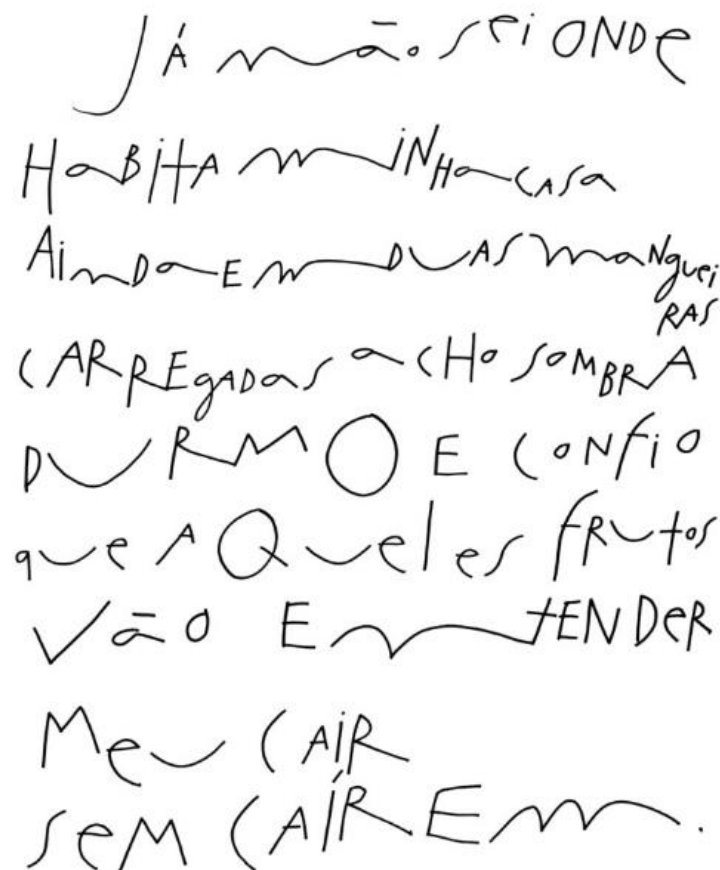 Já não sei ONDe
HaBiTA miNHa CASa
AiNDa Em DUAS maNguei
RAS
CARREgADaS aCHo SoMBRA
DURMO E CoNfio
que AQueles fRutos
Vão EmtENDeR
Meu CAiR
SeM CAÍREm.